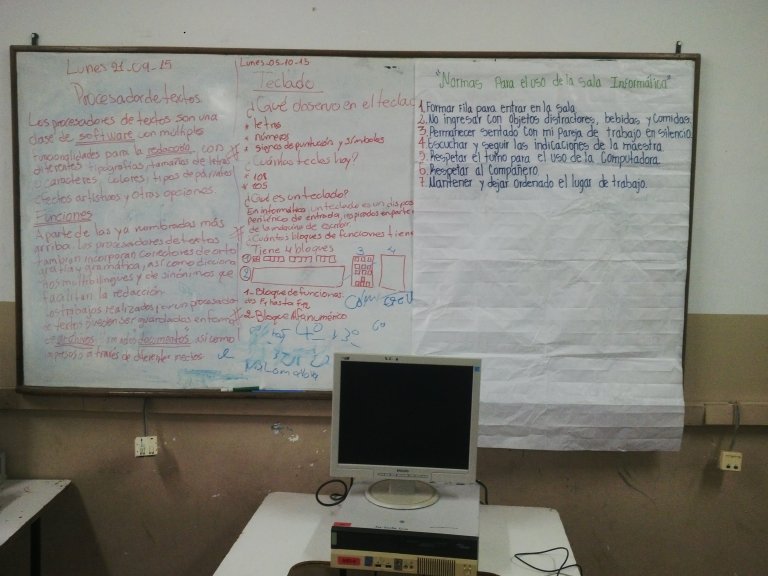 Lunes 21-09-15
Procesador de textos
Los procesadores de textos son una
clase de software con múltiples
funcionalidades para la redacción, con
diferentes tipografías, tamaños de letras
o caracteres, colores, tipos de párrafos
efectos artísticos y otras opciones.
Funciones
Aparte de las ya nombradas más
arriba. Los procesadores de textos
tambien incorporan correctores de orto
grafía y gramática, así como dicciona
rios multilingues y de sinónimos que
facilitan la redacción.
Los trabajos realizados en un procesador
de textos pueden ser guardados en forma
de archivos documentos así como
impresos a traves de diferentes medios
Lunes 05-10-15
Teclado
¿Qué observo en el teclad
* letras
* números
* signos de puntución y símbolos
¿Cuántas teclas hay?
* 108
* 105
¿Qué es un teclado?
En informática un teclado es un dispos
periférico de entrada, inspirados en parte
de la máquina de escribir
¿Cuántos bloques de funciones tiene
Tiene 4 bloques
1
2
3
4
1- Bloque de funciones
des F1 hasta F12
2- Bloque Alfanumérico
4º
"Normas Para el uso de la sala Informática"
1. Formar Fila para entrar en la sala
2. No ingresar con objetos distractores, bebidas y comidas.
3. Permanecer sentado con mi pareja de trabajo en silencio.
4. Escuchar y seguir las indicaciones de la maestra.
5. Respetar el turno para el uso de la Computadora
6. Respetar al Compañero
7. Mantener y dejar ordenado el lugar de trabajo.
PHILIPS